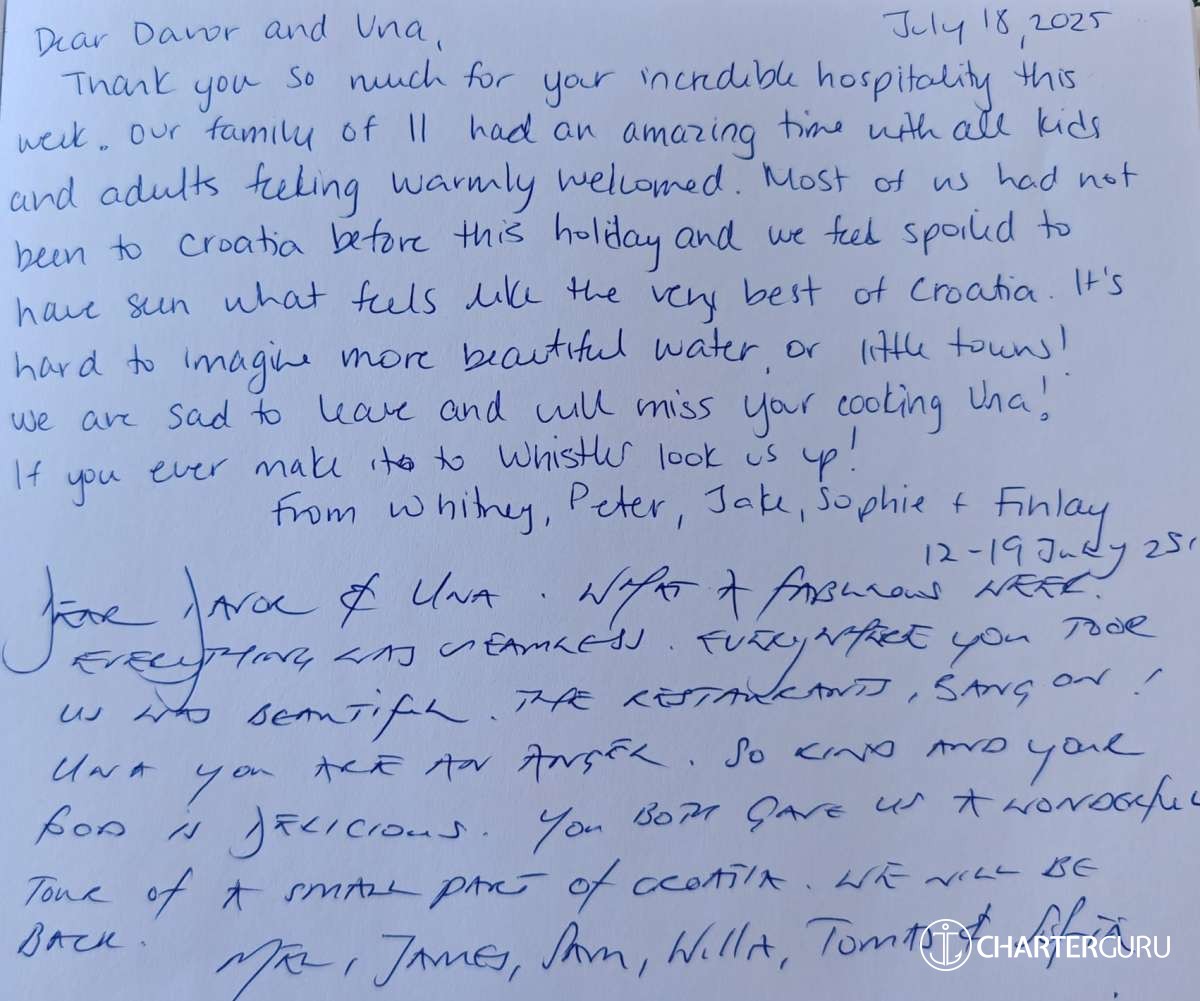 Dear Davor and Una,
July 18, 2025
Thank you so much for your incredible hospitality this
week. Our family of 11 had an amazing time with all kids
and adults feeling warmly welcomed. Most of us had not
been to Croatia before this holiday and we feel spoiled to
have seen what feels like the very best of Croatia. It's
hard to imagine more beautiful water or little towns!
We are sad to leave and will miss your cooking Una!
If you ever make it to Whistler look us up!
From Whitney, Peter, Jake, Sophie + Finlay
12-19 July 25'
DEAR DAVOR & UNA. WHAT A FABULOUS WEEK.
EVERYTHING WAS SEAMLESS. EVERYWHERE YOU TOOK
US WAS BEAUTIFUL. THE RESTAURANTS, BANG ON!
UNA YOU ARE AN ANGEL. SO KIND AND YOUR
FOOD IS DELICIOUS. YOU BOTH GAVE US A WONDERFUL
TOUR OF A SMALL PART OF CROATIA. WE WILL BE
BACK.
MEL, JAMES, SAM, WILLA, TOMAS &
CHARTERGURU